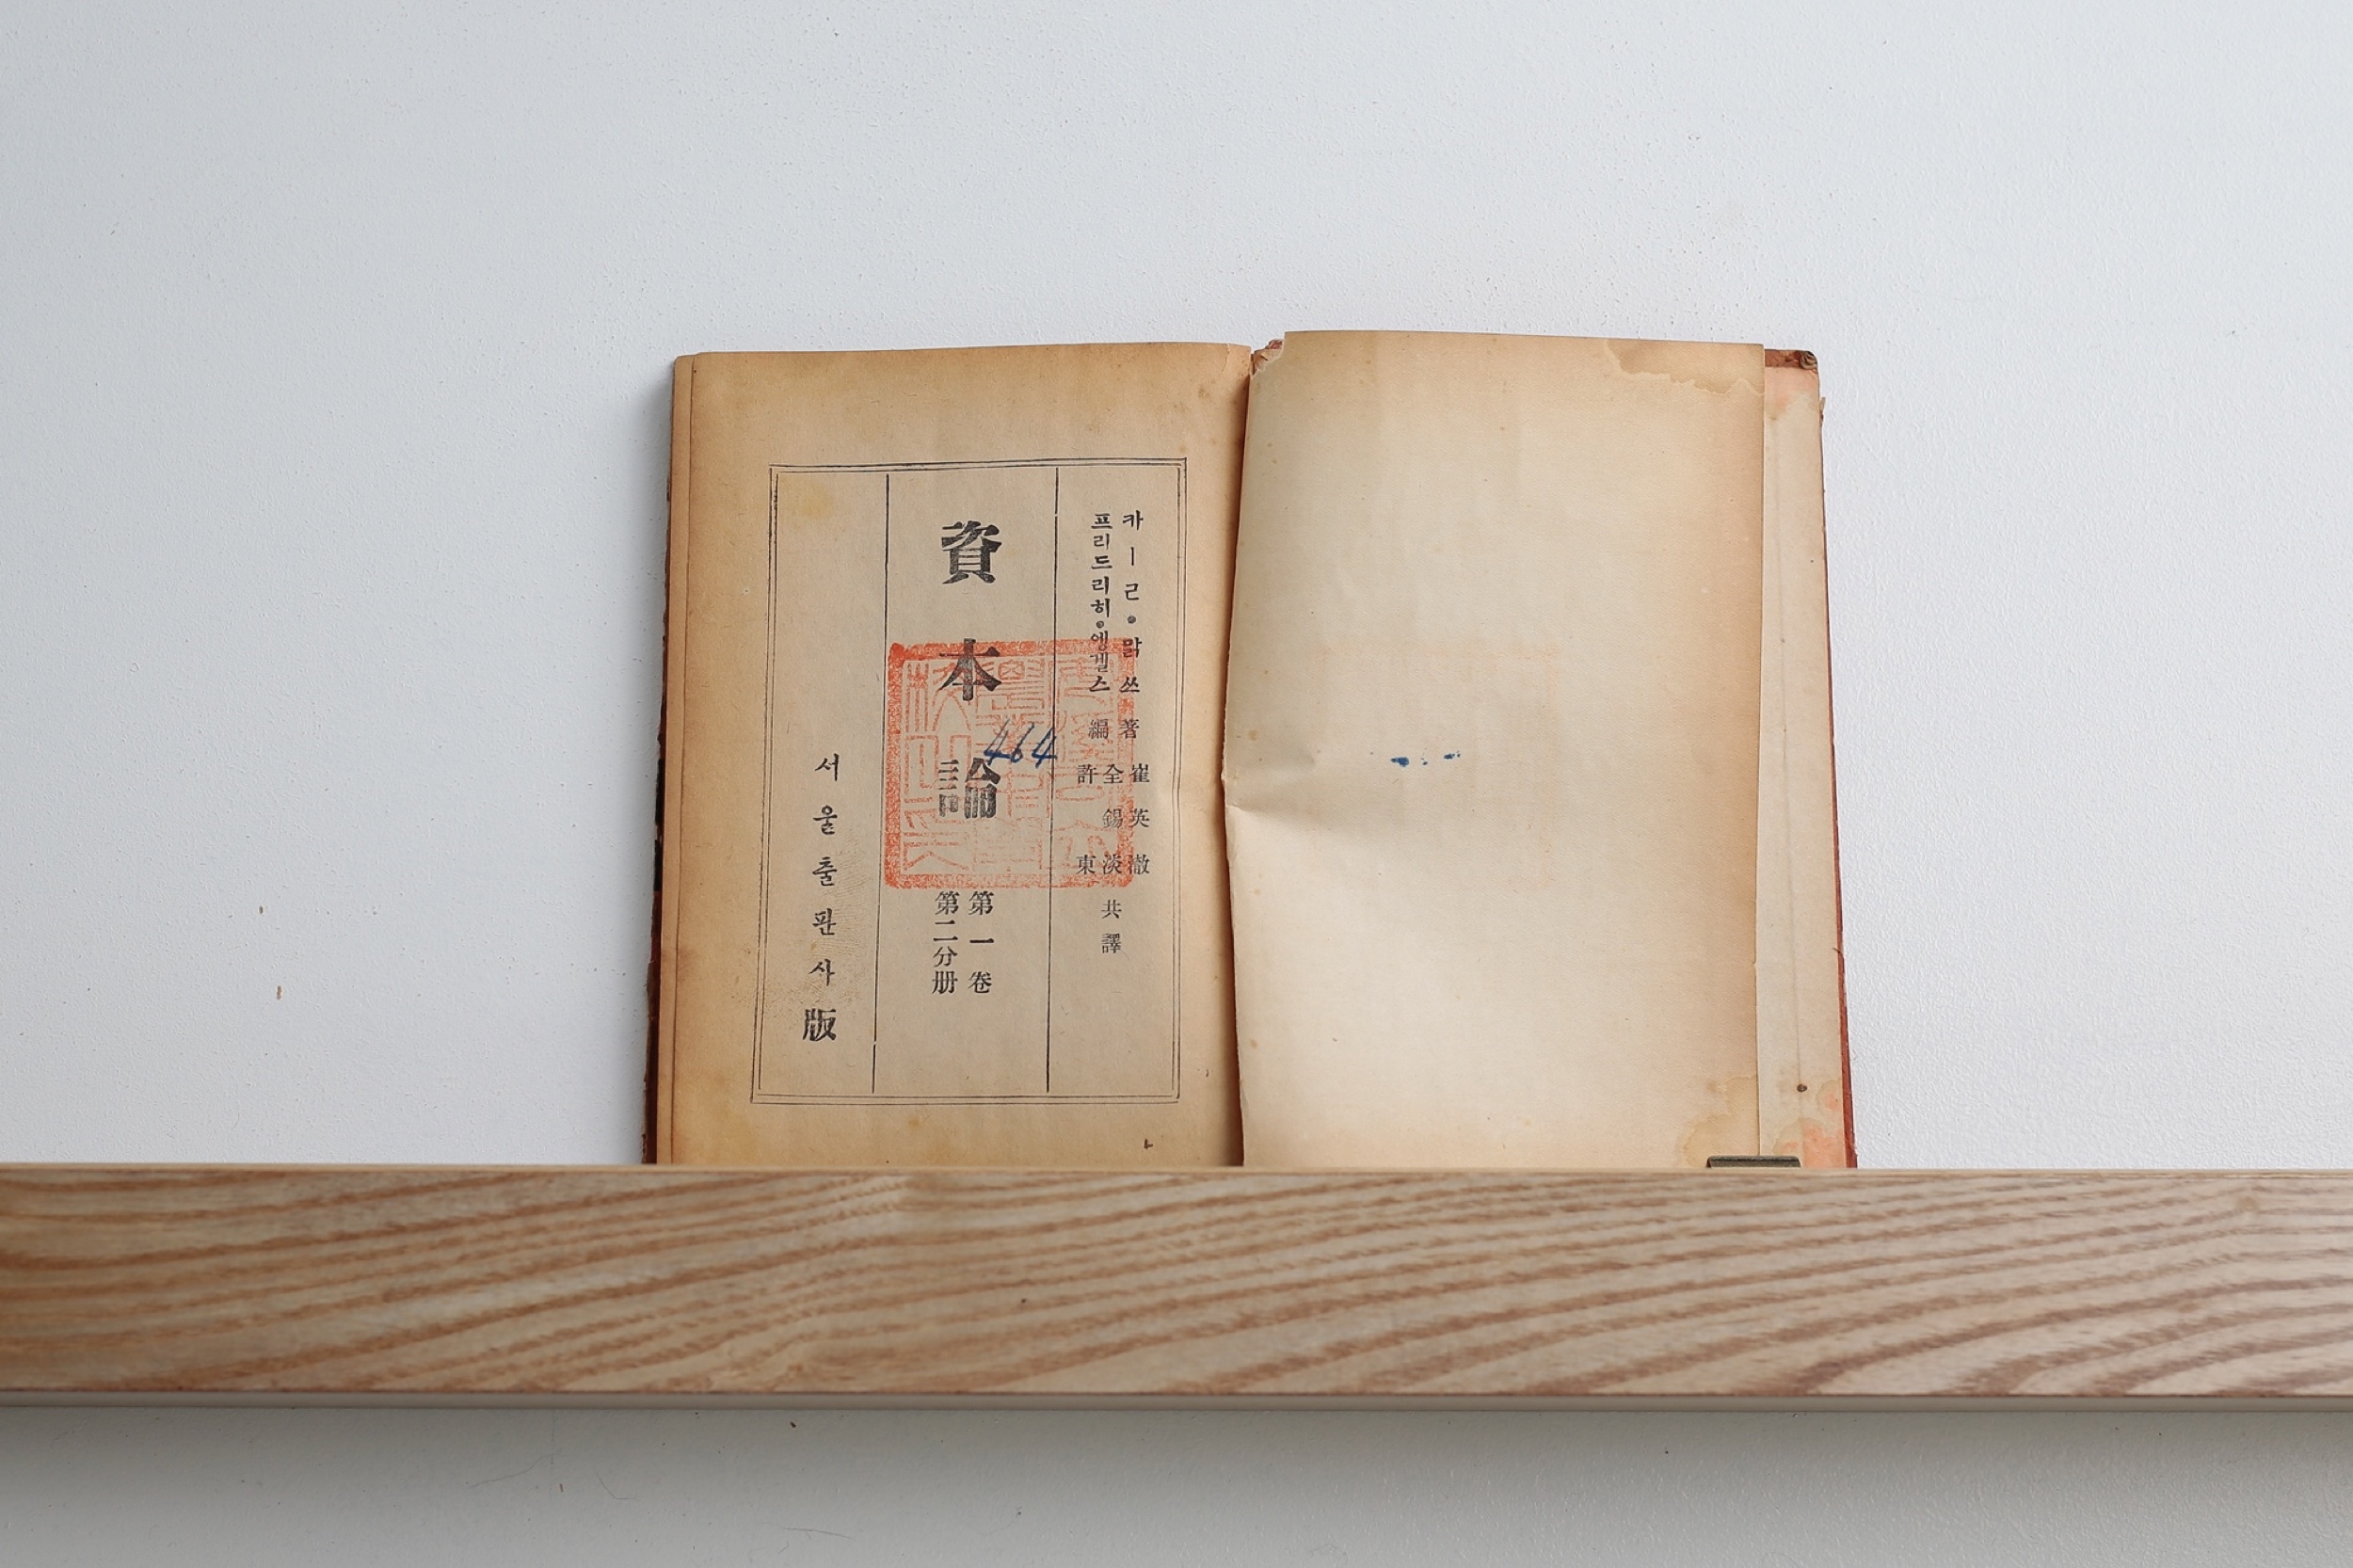 카ー르・맑쓰 著
프리드리히・엥겔스 編
崔英澈
全錫淡
許東
共譯
資本論
第一卷
第二分册
464
서울출판사版